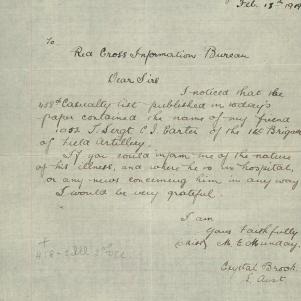 Feb. 13th 1919
To
Red Cross Information Bureau
Dear Sirs
I noticed that the
458th Casualty list published in today's
paper contained the name of my friend
1052 T. Sergt C. J. Carter of the 1st Brigade
of Field Artillery.
If you could inform me of the nature
of his illness, and where he is in hospital,
or any news concerning him in any way
I would be very grateful.
I am
yours Faithfully
(Miss) M. E. Munday.
Crystal Brook
S. Aust